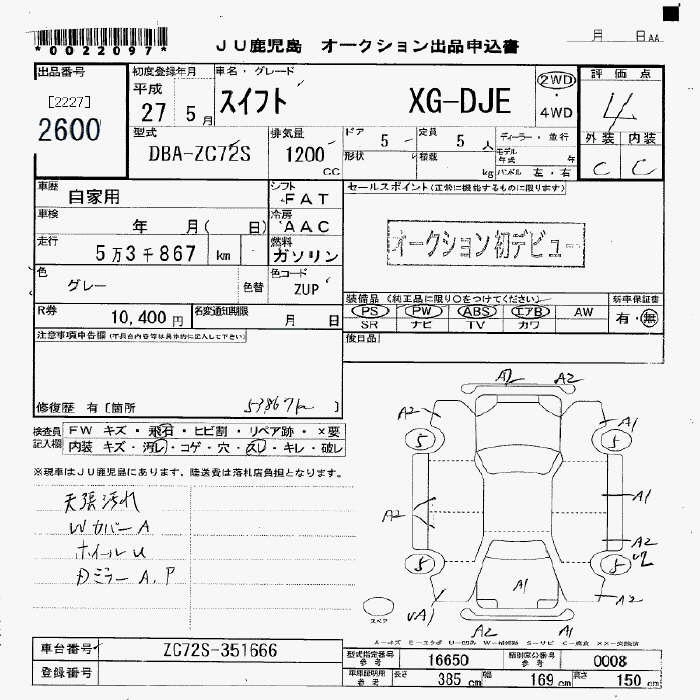 *0022097*
JU鹿児島 オークション出品申込書
月 日 AA
出品番号
[2227]
2600
初度登録年月
平成
27 5月
車名・グレード
スイフト XG-DJE
2WD
・
4WD
評価点
4
外装 内装
C C
型式
DBA-ZC72S
排気量
1200
CC
ドア 5
形状
定員 5 人
積載 kg
ディーラー・並行
モデル年式 年
ハンドル 左・右
車歴 自家用
シフト FAT
セールスポイント(正常に機能するものに限ります)
車検 年 月( 日)
冷房 AAC
走行 5万3千867 km
燃料 ガソリン
オークション初デビュー
色 グレー 色替
色コード ZUP
装備品(純正品に限り○をつけてください)
新車保証書
PS PW ABS エアB AW
有・無
SR ナビ TV カワ
R券 10,400円
名変通知期限 月 日
注意事項申告欄(不具合内容等は具体的に記入して下さい)
後日品
修復歴 有[箇所 53867km ]
検査員記入欄
FW キズ・飛石・ヒビ割・リペア跡・×要
内装 キズ・汚レ・コゲ・穴・スレ・キレ・破レ
※現車はJU鹿児島にあります、陸送費は落札店負担となります。
天張汚れ
Wカバー A
ホイール U
Dミラー A.P
A2 A2
A2 A1
5 5
A1
A2
A2
5 5 U2
A1
A2
A1
A2 A1
スペア
車台番号 ZC72S-351666
登録番号
型式指定番号 参考 16650
類別区分番号 参考 0008
車庫証明用 参考
長さ 385 cm
幅 169 cm
高さ 150 cm